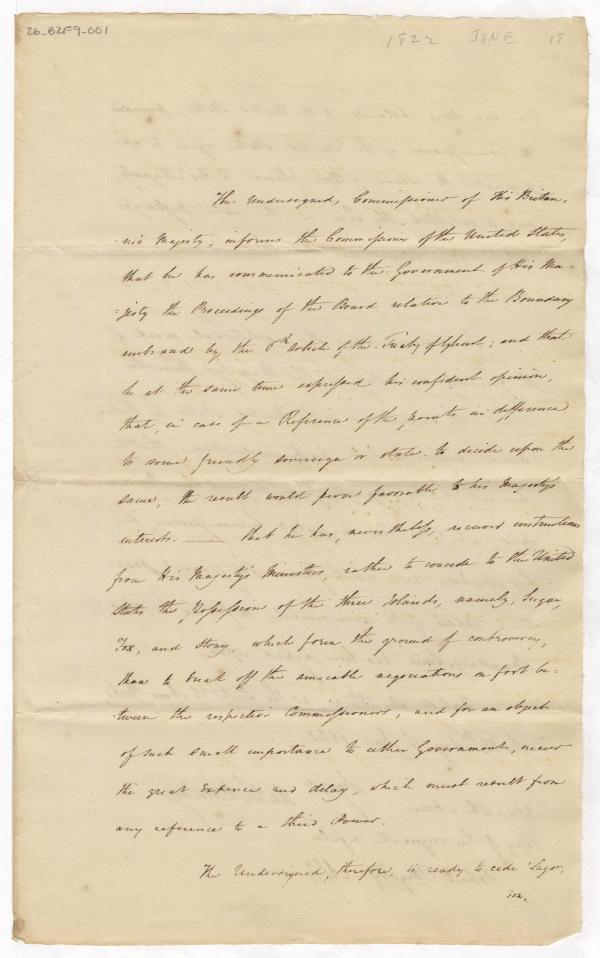 26-B2F9-001
1822 JUNE 18
The Undersigned, Commissioner of His Britan-
nic Majesty, informs the Commissioner of the United States,
that he has communicated to the Government of His Ma-
=jesty the Proceedings of the Board relation to the Boundary
embraced by the 6th Article of the Treaty of Ghent; and that
he at the same time expressed his confident opinion,
that, in case of a Reference of the points in difference
to some friendly sovereign or state to decide upon the
same, the result would prove favorable to his Majesty's
interests. —— that he has, nevertheless, received instructions
from His Majesty's Ministers, rather to concede to the United
States the Possession of the three Islands, namely, Sugar,
Fox, and Stony, which form the ground of controversy,
than to break off the amicable negociations on foot be-
tween the respective Commissioners, and for an object
of such small importance to either Government, incur
the great Expence and delay, which must result from
any reference to a third Power.
The Undersigned, therefore, is ready to cede Sugar,
Fox,